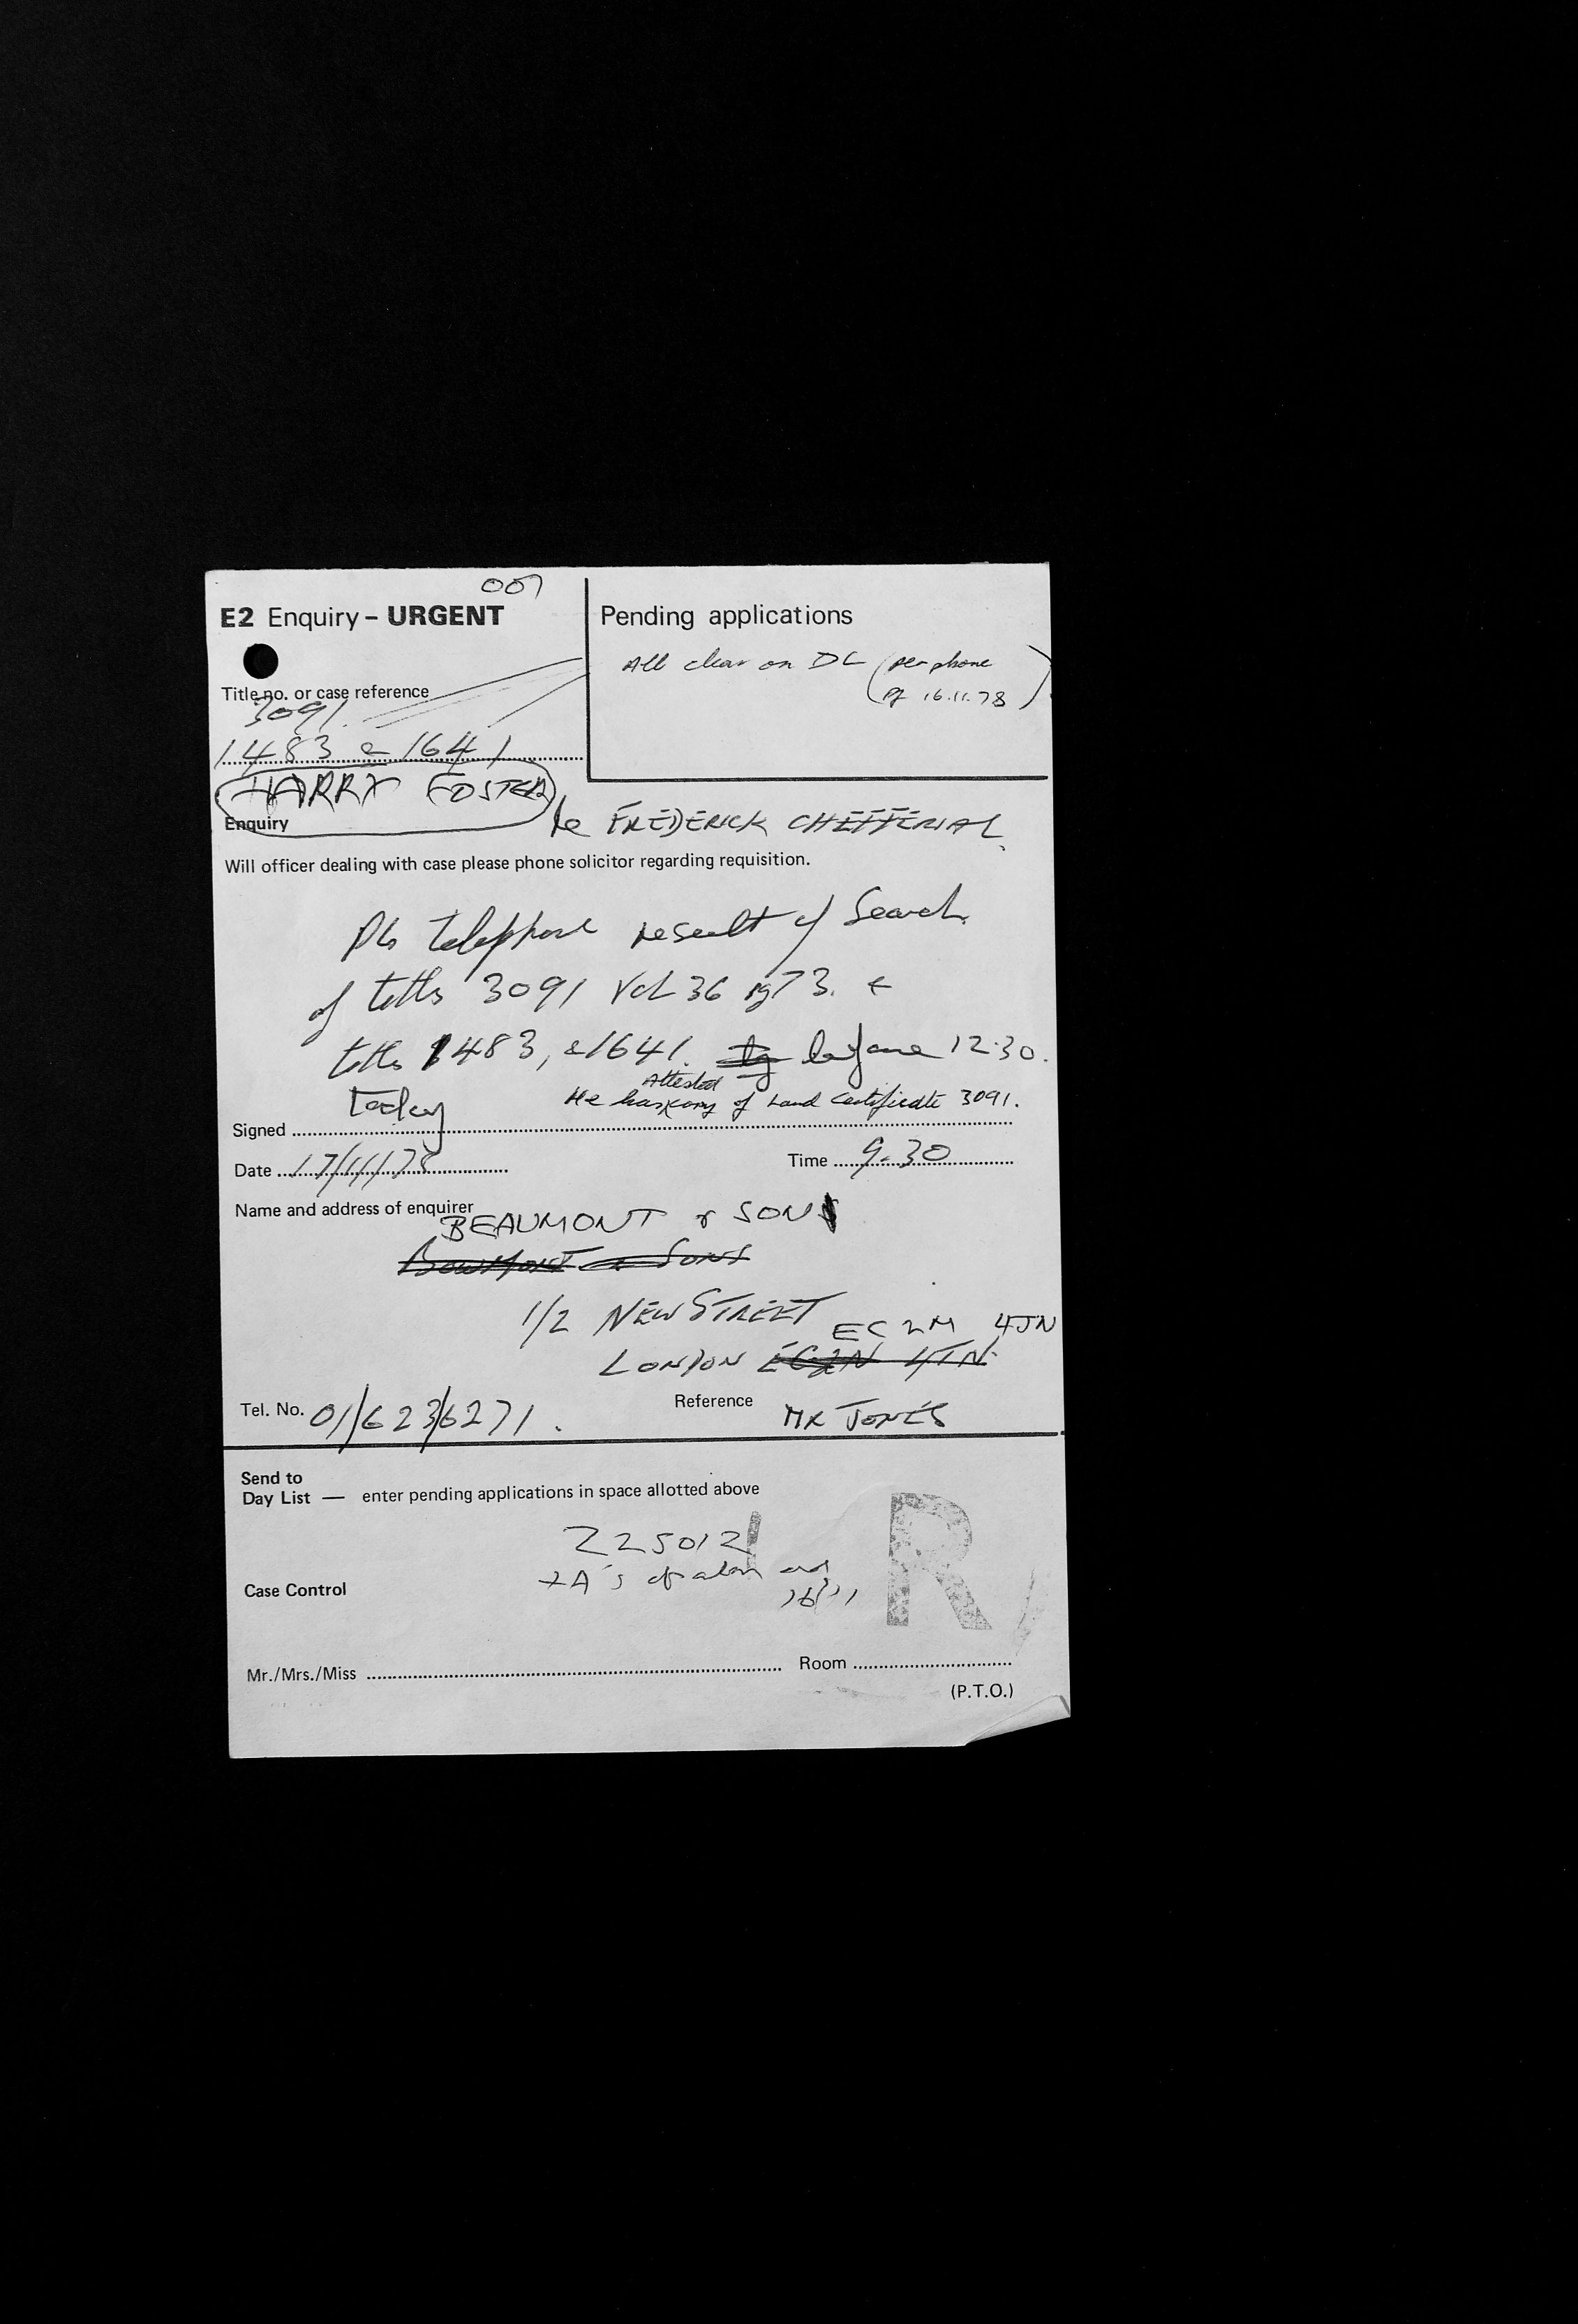 007
E2 Enquiry – URGENT
Title no. or case reference
3091.
1483 & 1641
HARRY FOSTER
Pending applications
All clear on DL (per phone
16.11.78)
Enquiry
re FREDERICK
Will officer dealing with case please phone solicitor regarding requisition.
Pls telephone result of Search
of titles 3091 Vol 36 pg 73. &
titles 1483, & 1641. before 12.30.
Today
He has Attested copy of Land Certificate 3091.
Signed
Date 17/11/78
Time 9.30
Name and address of enquirer
BEAUMONT & SON
Bowmont & Sons
1/2 NEW STREET
EC2M 4JN
LONDON EC2N 4JN
Tel. No. 01/623/6271.
Reference MR JONES
Send to
Day List — enter pending applications in space allotted above
Z25012
Case Control
16/11
R
Mr./Mrs./Miss
Room
(P.T.O.)